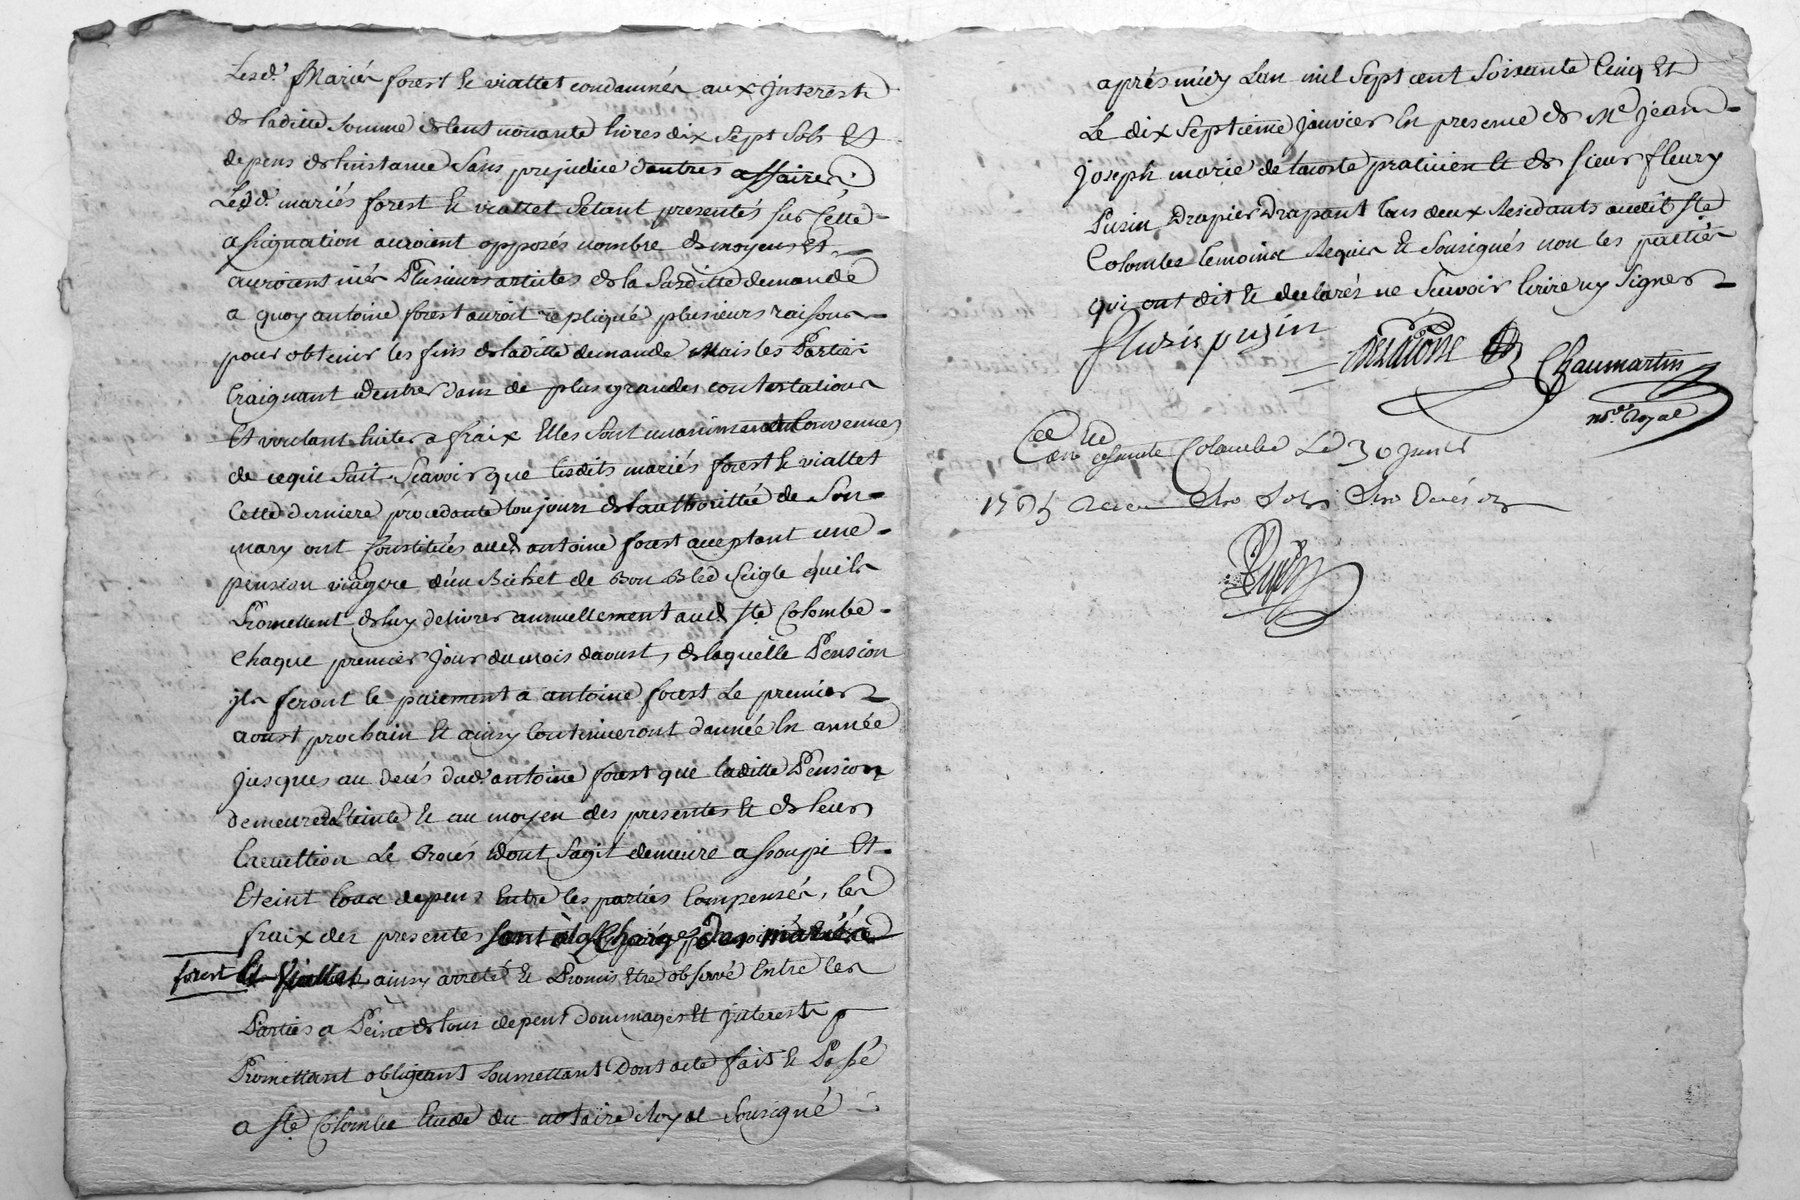 Lesd. Mariés forest et viallet condamnés aux jnterest
de laditte somme de cent nonante livres dix sept sols Et
depens de linstance sans prejudice dautres affaires
Lesd. mariés forest et viallet setant presentés sur Cette
assignation auroient opposés nombre de moyens Et
auroient niés Plusieurs articles de la susditte demande
a quoy antoine forest auroit repliqué plusieurs raisons
pour obtenir les fins de laditte demande Mais les Parties
Craignant dentrer dans de plus grandes contestations
Et voulant Eviter a fraix Elles sont unanimement Convenues
de ce qui suit, Scavoir que lesdits mariés forest et viallet
Cette derniere procedante toujours de lauthorittée de son
mary ont Constitués aud. antoine forest acceptant une
pension viagere d'un Bichet de Bon Bled seigle quils
Promettent de luy delivrer annuellement aud. Ste Colombe
Chaque premier jour du mois daoust, de laquelle Pension
jls feront le paiement a antoine forest Le premier
aoust prochain et ainsy Continueront dannée En année
jusques au decés dud. antoine forest que laditte Pension
demeurera Eteinte et au moyen des presentes et de leur
Execution Le Procés dont sagit demeure assoupi Et
Eteint tous depens Entre les parties Compensés, les
fraix des presentes sont à la Charge Des mariés
forest Et Viallet, ainsy arreté et Promis Etre observé Entre les
Parties a Peine de tous depens Dommages Et jnterests
Promettant obligeant soumettant Dont acte fait et Passé
a Ste Colombe Etude du notaire Royal sousigné
aprés midy Lan mil sept cent soixante Cinq Et
Le dix septieme janvier En presence de Me jean
joseph marie de lacoste praticien et de sieur fleury
Pusin Drapier Drapant tous deux Residants audit Ste
Colombe temoins Requis et sousignés non les parties
qui ont dit et declarés ne scavoir Ecrire ny signer
fleurie puzin
Delacoste
Chaumartin
nore Royal
a sainte Colombe Le 30 janvr
1765 Recu